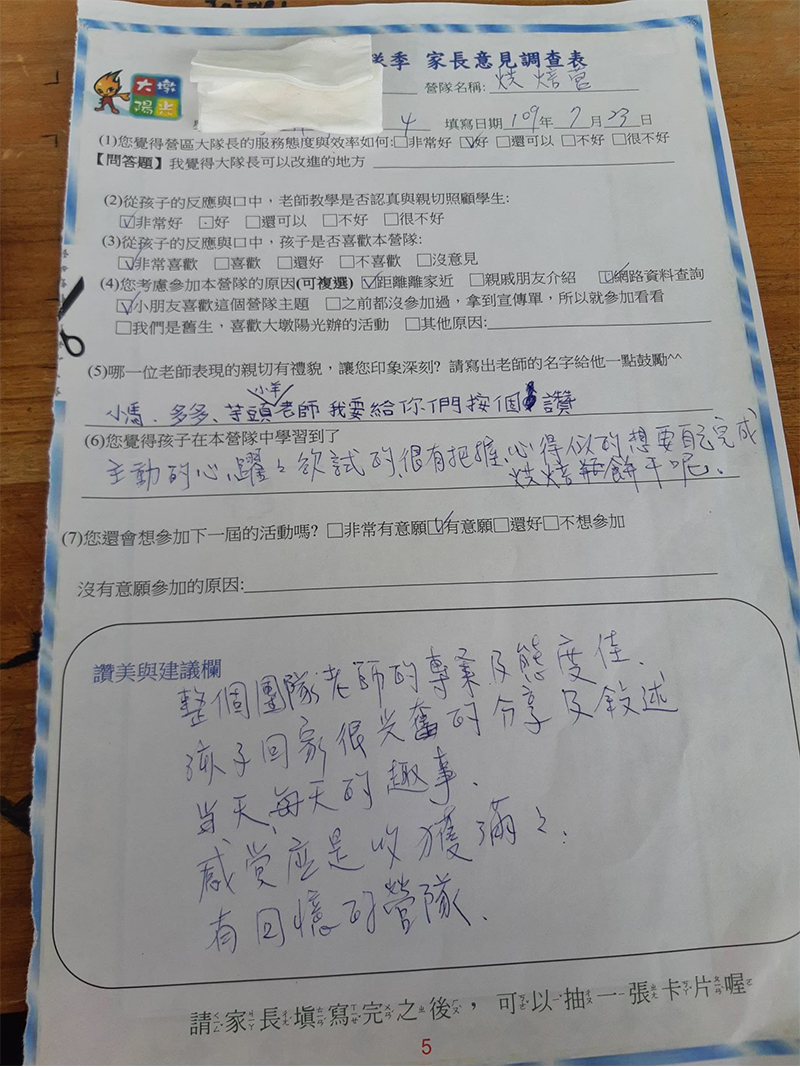 季 家長意見調查表
大墩
陽光
營隊名稱: 烘焙營
4 填寫日期 109年 7月 23日
(1)您覺得營區大隊長的服務態度與效率如何:□非常好 ☑好 □還可以 □不好 □很不好
【問答題】我覺得大隊長可以改進的地方
(2)從孩子的反應與口中,老師教學是否認真與親切照顧學生:
☑非常好 □好 □還可以 □不好 □很不好
(3)從孩子的反應與口中,孩子是否喜歡本營隊:
☑非常喜歡 □喜歡 □還好 □不喜歡 □沒意見
(4)您考慮參加本營隊的原因(可複選) ☑距離離家近 □親戚朋友介紹 ☑網路資料查詢
☑小朋友喜歡這個營隊主題 □之前都沒參加過,拿到宣傳單,所以就參加看看
□我們是舊生,喜歡大墩陽光辦的活動 □其他原因:
(5)哪一位老師表現的親切有禮貌,讓您印象深刻? 請寫出老師的名字給他一點鼓勵^^
小羊
小馮、多多、芋頭老師 我要給你們按個讚
(6)您覺得孩子在本營隊中學習到了
主動的心,躍々欲試的,很有把握、心得似的想要自己完成
烘焙餅干呢、
(7)您還會想參加下一屆的活動嗎? □非常有意願☑有意願□還好□不想參加
沒有意願參加的原因:
讚美與建議欄
整個團隊老師的專業及態度佳、
孩子回家很興奮的分享及敘述
當天、每天的趣事、
感覺應是收獲滿々、
有回憶的營隊、
請家長填寫完之後,可以抽一張卡片喔
5